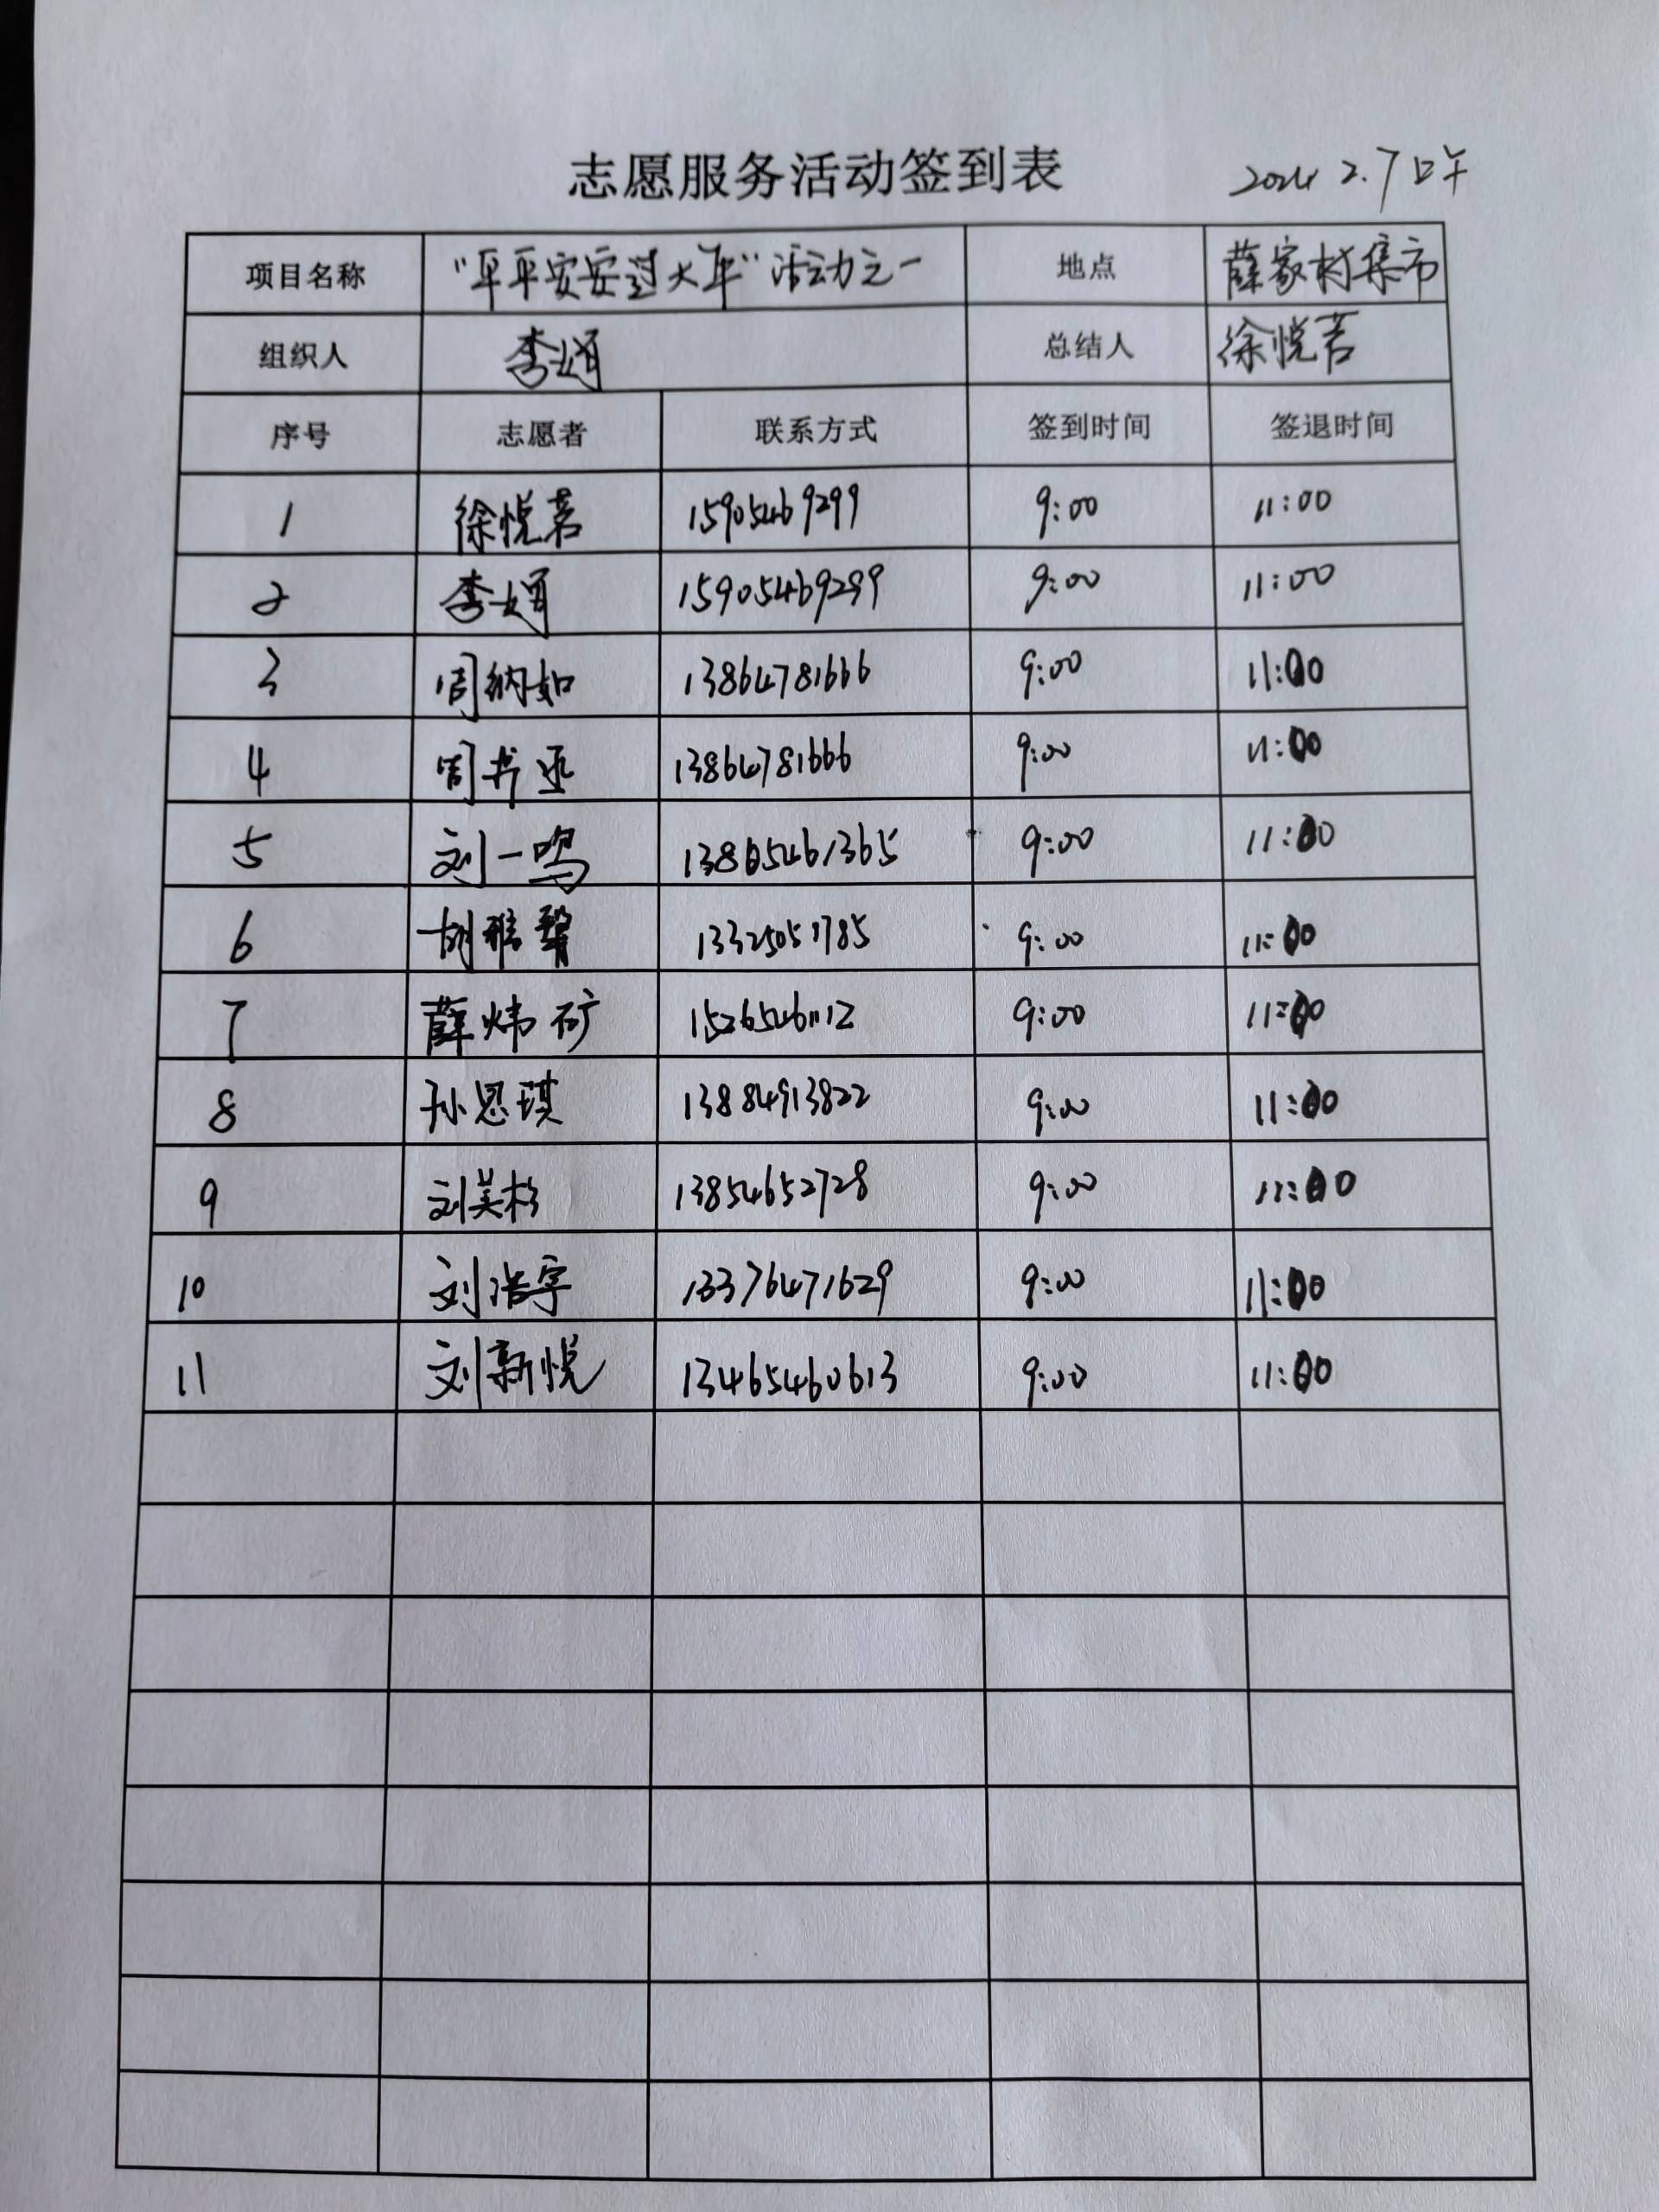 志愿服务活动签到表 2024 2.7日午
项目名称 “平平安安过大年”活动之一 地点 薛家村集市
组织人 李娟 总结人 徐悦茗
序号 志愿者 联系方式 签到时间 签退时间
1 徐悦茗 15905469299 9:00 11:00
2 李娟 15905469299 9:00 11:00
3 周纳如 13864781666 9:00 11:00
4 周书丞 13864781666 9:00 11:00
5 刘一鸣 13805461365 9:00 11:00
6 胡雅馨 13325051785 9:00 11:00
7 薛炜矿 15265461112 9:00 11:00
8 孙思琪 13884913822 9:00 11:00
9 刘美杉 13854652728 9:00 11:00
10 刘浩宇 13376471629 9:00 11:00
11 刘新悦 13465460613 9:00 11:00